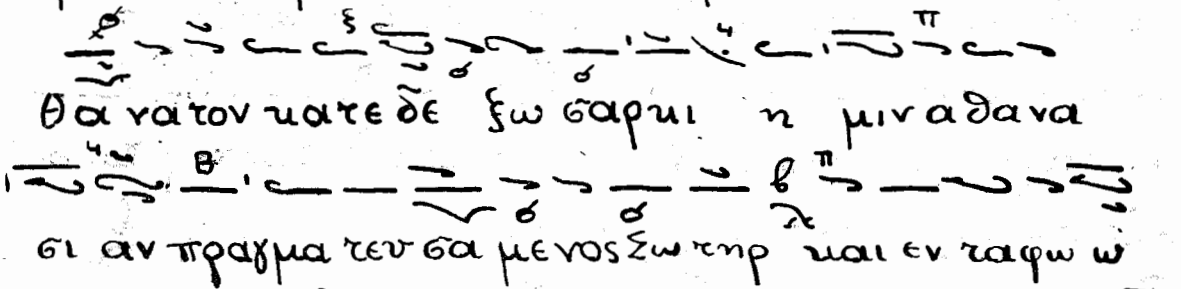 θα να τον κα τε δε ξω σαρ κι η μιν α θα να
σι αν πραγμα τευ σα με νος Σω τηρ και εν ταφω ω